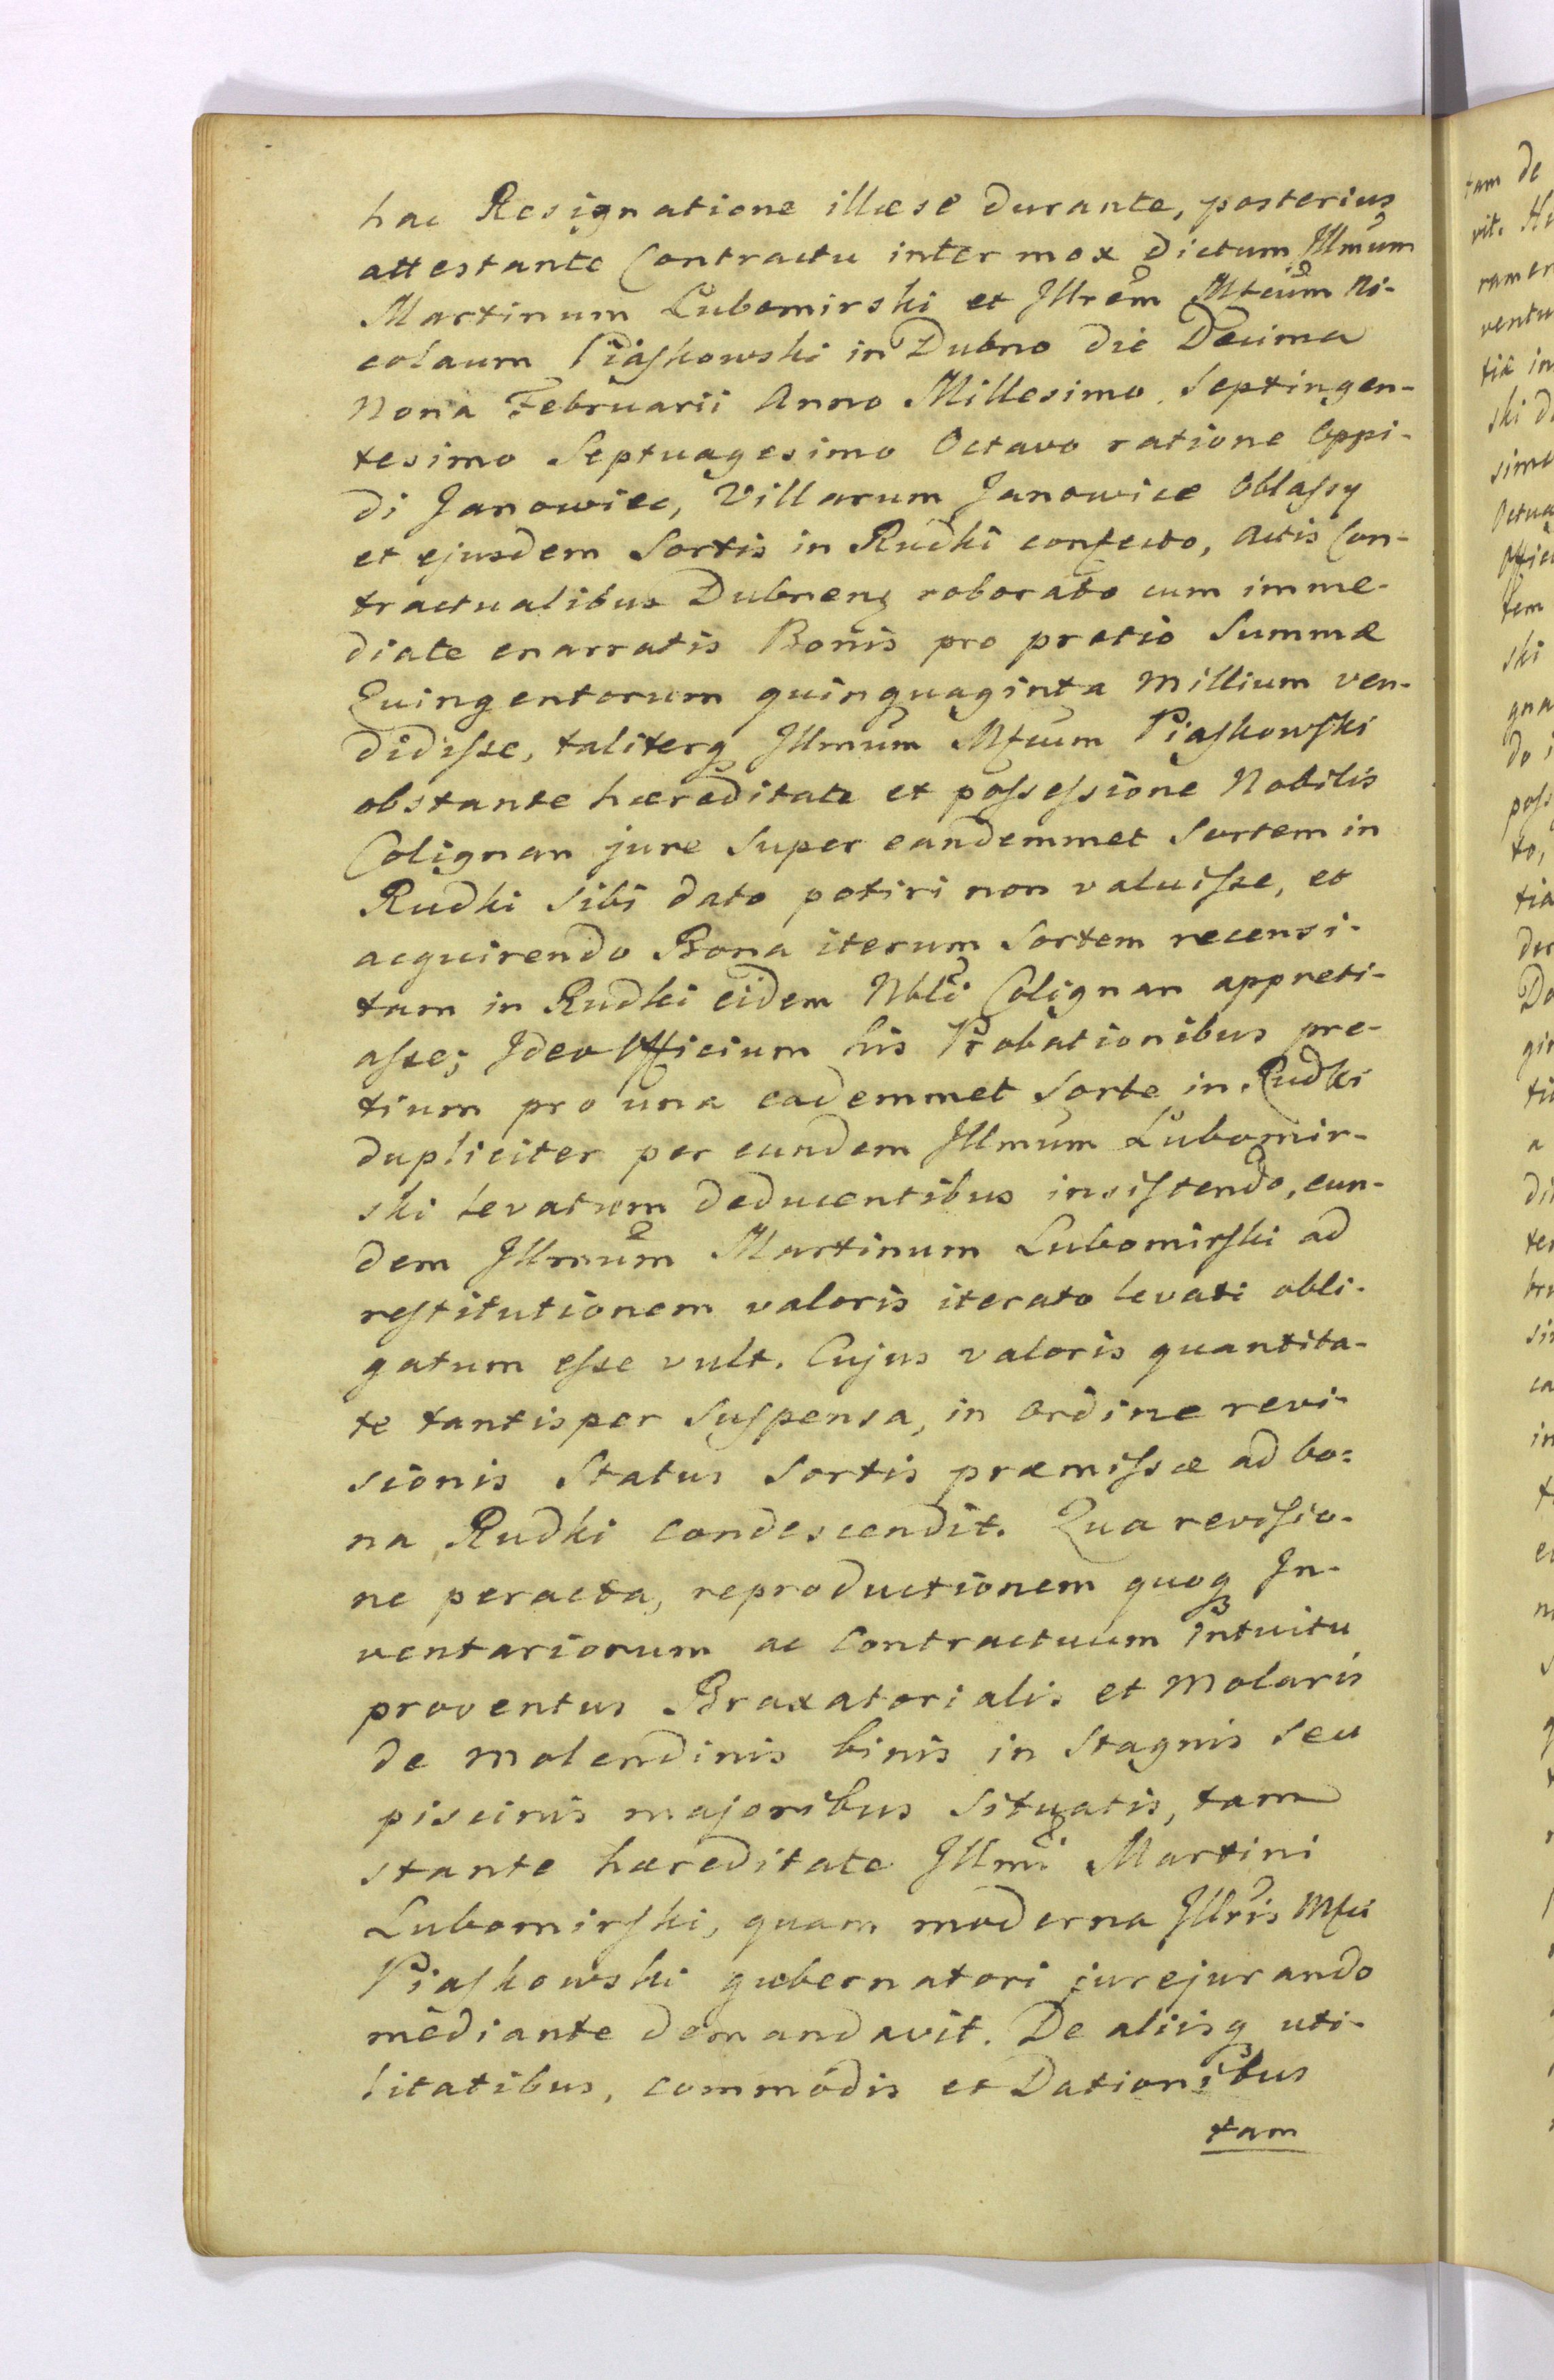 hac Resignatione illæse durante, posterius
attestante Contractu inter mox dictum Illmum
Martinum Lubomirski et Illrem Mfcum Ni-
colaum Piaskowski in Dubno die Decima
Nona Februarii Anno Millesimo Septingen-
tesimo Septuagesimo Octavo ratione Oppi-
di Janowiec, Villarum Janowice Oblassy
et ejusdem Sortis in Rudki confecto, Actis Con-
tractualibus Dubnens roborato cum imme-
diate enarratis Bonis pro pretio Summæ
Quingentorum quinquaginta Millium ven-
didisse, taliterq Illmum Mfcum Piaskowski
obstante hæreditate et possessione Nobilis
Colignan jure super eandemmet Sortem in
Rudki sibi dato potiri non valuisse, et
acquirendo Bona iterum Sortem recensi-
tam in Rudki eidem Nbli Colignan appreti-
asse; Ideo Officium his Probationibus pre-
tium pro una eademmet Sorte in Rudki
dupliciter per eundem Illmum Lubomir-
ski levatum deducentibus insistendo, eun-
dem Illmum Martinum Lubomirski ad
restitutionem valoris iterato levati obli-
gatum esse vult. Cujus valoris quantita-
te tantisper suspensa, in ordine revi-
sionis Status Sortis præmissæ ad bo=
na Rudki condescendit. Qua revisio-
ne peracta, reproductionem quoq In-
ventariorum ac Contractuum intuitu
proventus Braxatorialis et Molaris
de molendinis binis in Stagnis seu
piscinis majoribus Situatis, tam
stante hæreditate Illmi Martini
Lubomirski, quam moderna Illris Mfci
Piaskowski gubernatori jurejurando
mediante demandavit. De aliisq uti-
litatibus, commodis et Dationibus
tam